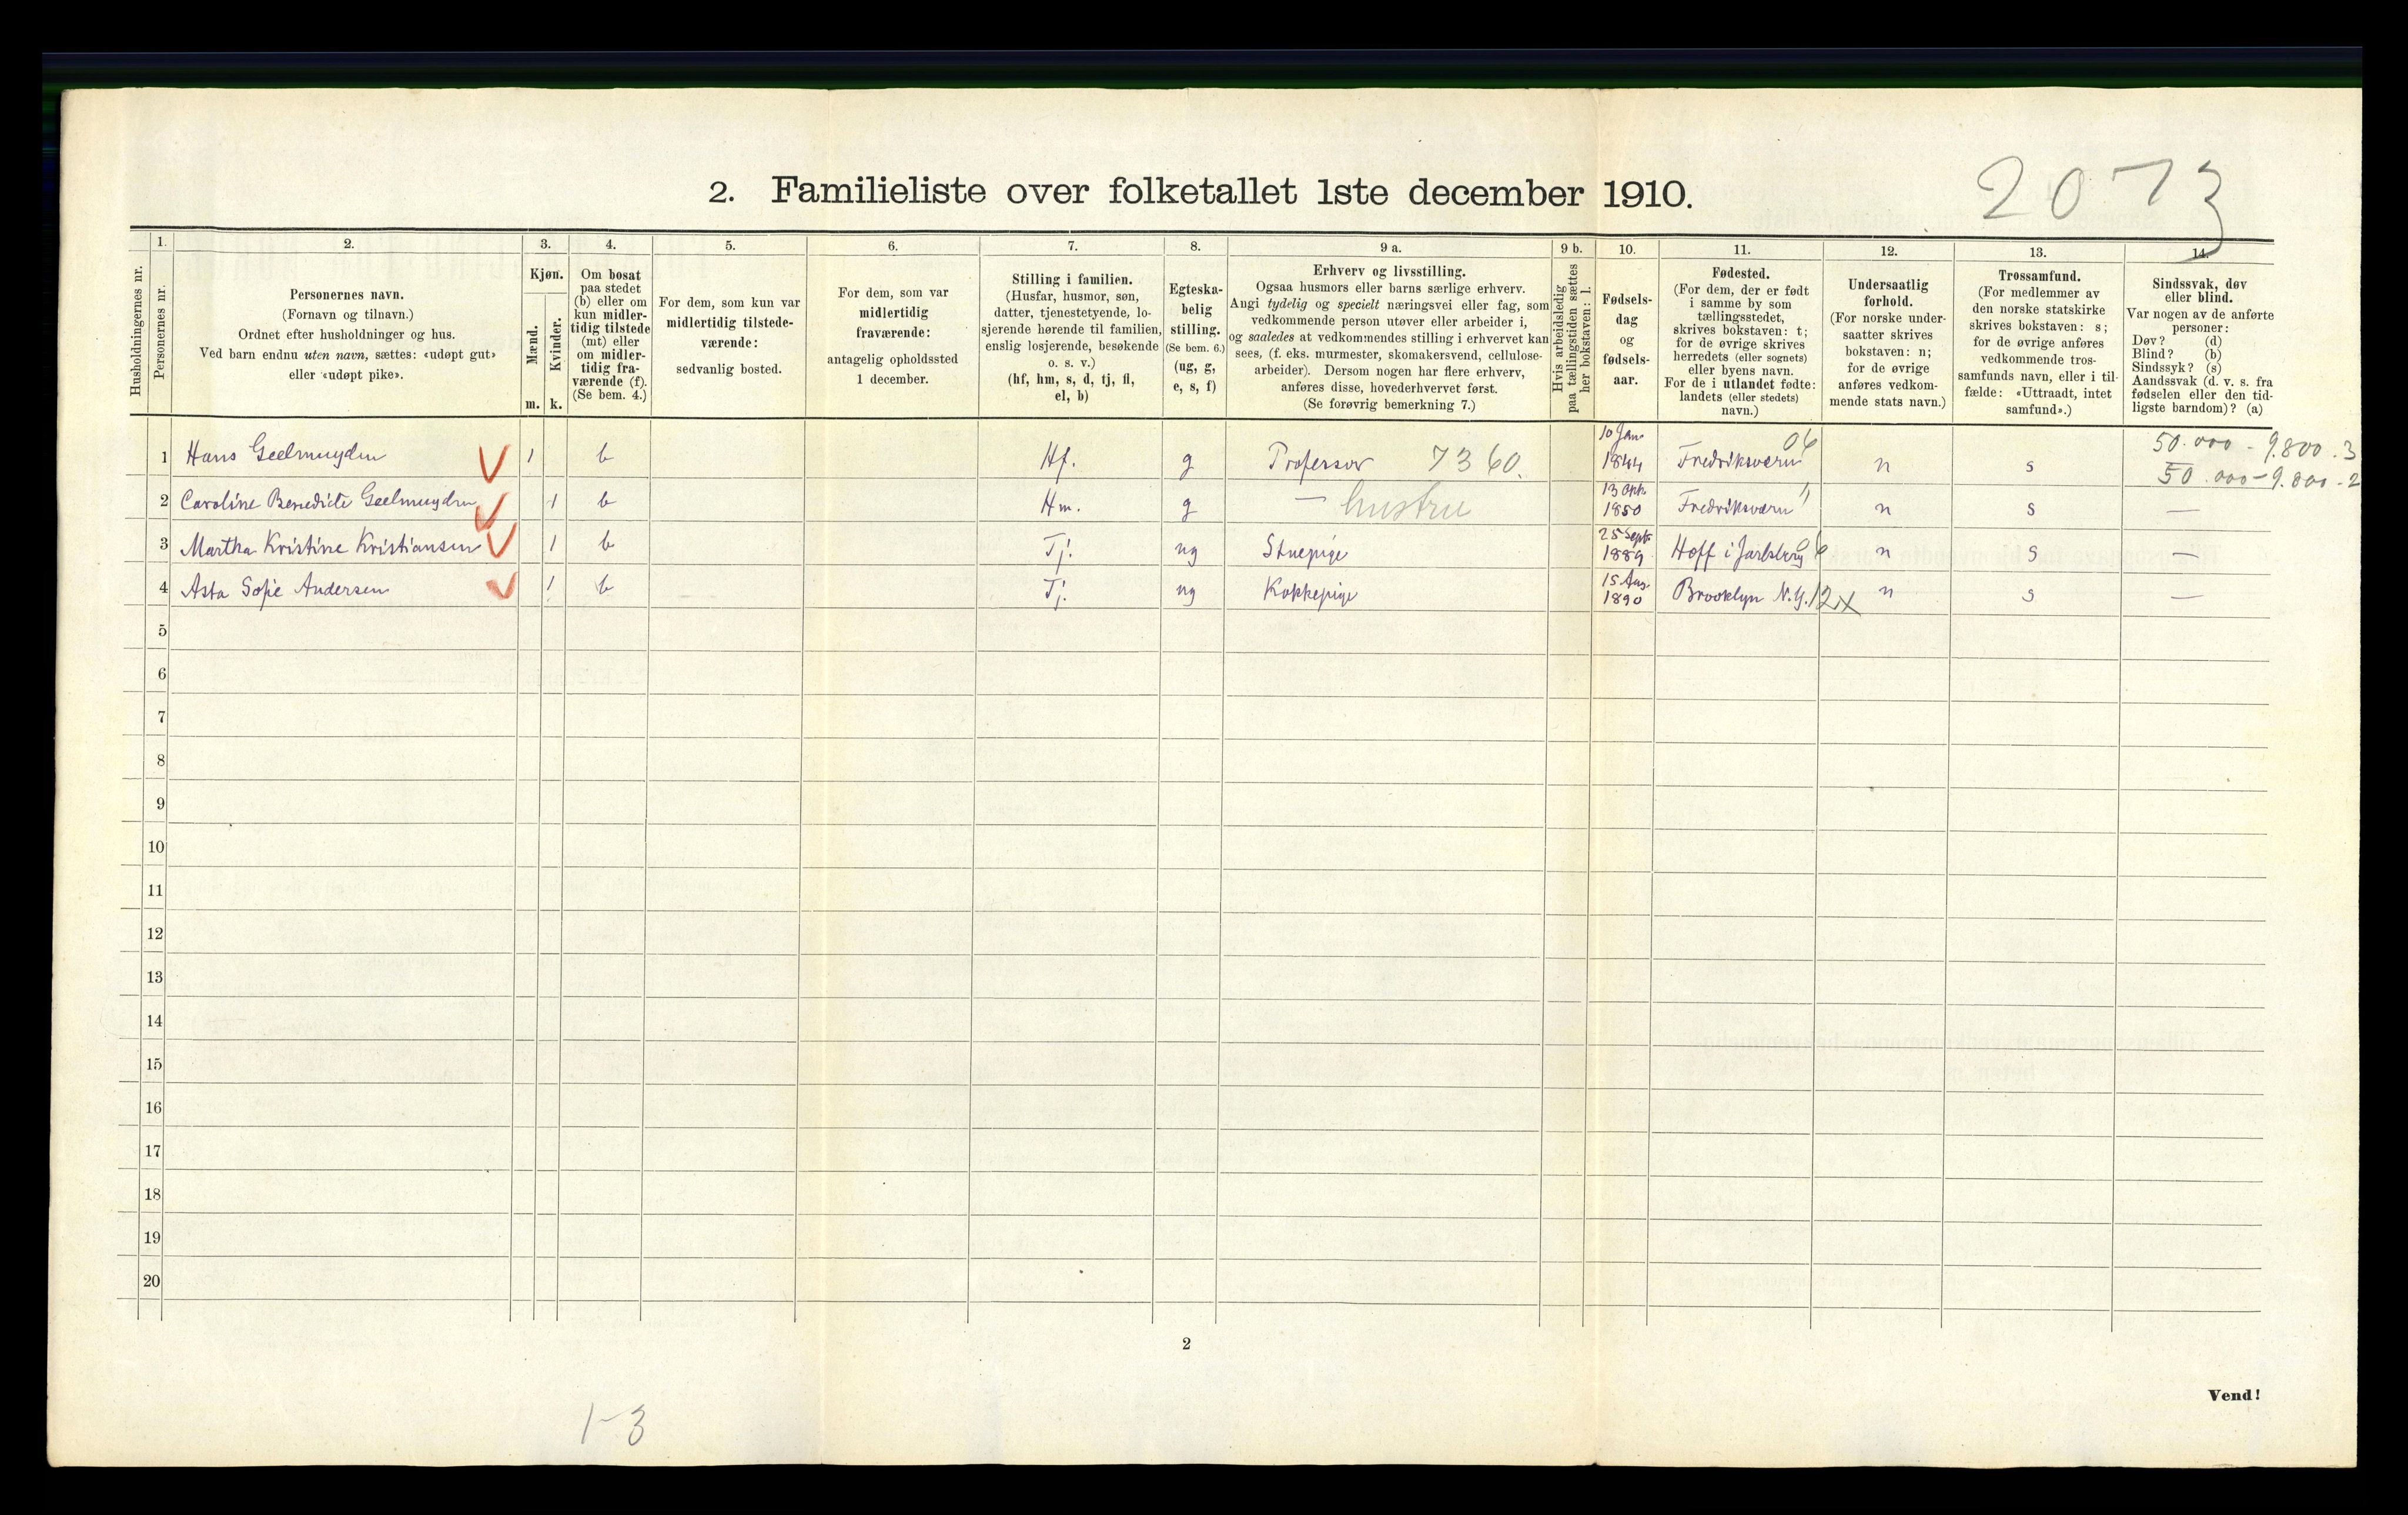 2073
2. Familieliste over folketallet 1ste december 1910.
Husholdningernes nr.
1.
Personernes nr.
2.
Personernes navn.
(Fornavn og tilnavn.)
Ordnet efter husholdninger og hus.
Ved barn endnu uten navn, sættes: «udøpt gut»
eller «udøpt pike».
3.
Kjøn.
Mænd.
Kvinder.
m. k.
4.
Om bosat
paa stedet
(b) eller om
kun midler-
tidig tilstede
(mt) eller
om midler-
tidig fra-
værende (f).
(Se bem. 4.)
5.
For dem, som kun var
midlertidig tilstede-
værende:
sedvanlig bosted.
6.
For dem, som var
midlertidig
fraværende:
antagelig opholdssted
1 december.
7.
Stilling i familien.
(Husfar, husmor, søn,
datter, tjenestetyende, lo-
sjerende hørende til familien,
enslig losjerende, besøkende
o. s. v.)
(hf, hm, s, d, tj, fl,
el, b)
8.
Egteska-
belig
stilling.
(Se bem. 6.)
(ug, g,
e, s, f)
9 a.
Erhverv og livsstilling.
Ogsaa husmors eller barns særlige erhverv.
Angi tydelig og specielt næringsvei eller fag, som
vedkommende person utøver eller arbeider i,
og saaledes at vedkommendes stilling i erhvervet kan
sees, (f. eks. murmester, skomakersvend, cellulose-
arbeider). Dersom nogen har flere erhverv,
anføres disse, hovederhvervet først.
(Se forøvrig bemerkning 7.)
9 b.
Hvis arbeidsledig
paa tællingstiden sættes
her bokstaven: l.
10.
Fødsels-
dag
og
fødsels-
aar.
11.
Fødested.
(For dem, der er født
i samme by som
tællingsstedet,
skrives bokstaven: t;
for de øvrige skrives
herredets (eller sognets)
eller byens navn.
For de i utlandet fødte:
landets (eller stedets)
navn.)
12.
Undersaatlig
forhold.
(For norske under-
saatter skrives
bokstaven: n;
for de øvrige
anføres vedkom-
mende stats navn.)
13.
Trossamfund.
(For medlemmer av
den norske statskirke
skrives bokstaven: s;
for de øvrige anføres
vedkommende tros-
samfunds navn, eller i til-
fælde: «Uttraadt, intet
samfund».)
14.
Sindssvak, døv
eller blind.
Var nogen av de anførte
personer:
Døv? (d)
Blind? (b)
Sindssyk? (s)
Aandssvak (d. v. s. fra
fødselen eller den tid-
ligste barndom)? (a)
1 Hans Geelmuyden 1 b Hf. g Professor 7360. 10 Jan. 1844 Fredriksværn 06 n s 50.000 - 9.800. 3
50.000 - 9.800 - 2
2 Caroline Benedicte Geelmuyden 1 b Hm. g — hustru 13 Okt. 1850 Fredriksværn " n s —
3 Martha Kristine Kristiansen 1 b Tj. ug Stuepige 25 Sept. 1889 Hoff i Jarlsberg 06 n s —
4 Asta Sofie Andersen 1 b Tj. ug Kokkepige 15 Aug. 1890 Brooklyn N.Y. 12 x n s —
5
6
7
8
9
10
11
12
13
14
15
16
17
18
19
20
2
Vend!
1-3